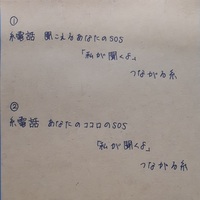 ①
糸電話 聞こえるあなたのSOS
「私が聞くよ」
つながる糸
②
糸電話 あなたのココロのSOS
「私が聞くよ」
つながる糸